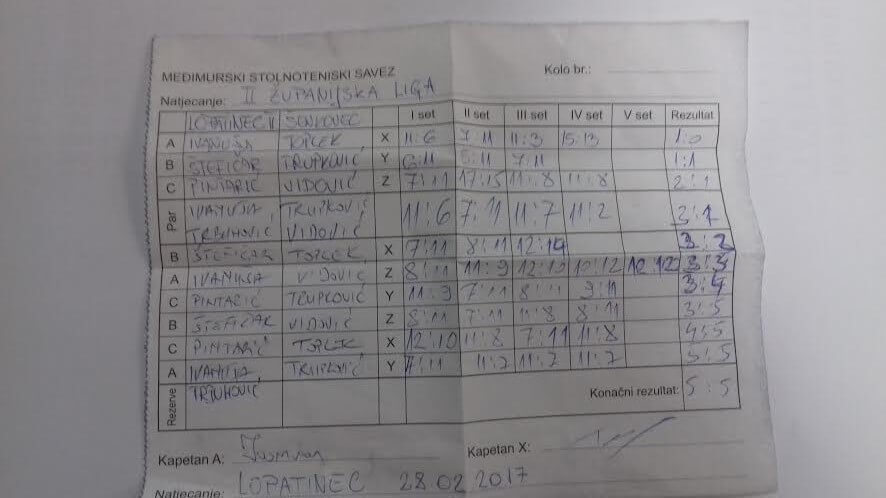 MEĐIMURSKI STOLNOTENISKI SAVEZ Kolo br.:
Natjecanje: II ŽUPANIJSKA LIGA
LOPATINEC II SENKOVEC I set II set III set IV set V set Rezultat
A IVANUŠA TOPLEK X 11:6 7:11 11:3 15:13 1:0
B ŠTEFIČAR TRUPKOVIĆ Y 6:11 5:11 7:11 1:1
C PINTARIĆ VIDOVIĆ Z 7:11 17:15 11:8 11:8 2:1
Par IVANUŠA, TRUPKOVIĆ 11:6 7:11 11:7 11:2 3:1
TRPUHOVIĆ VIDOVIĆ
B ŠTEFIČAR TOPLEK X 7:11 8:11 12:14 3:2
A IVANUŠA VIDOVIĆ Z 8:11 11:9 12:10 10:12 10:12 3:3
C PINTARIĆ TRUPKOVIĆ Y 11:9 7:11 8:11 9:11 3:4
B ŠTEFIČAR VIDOVIĆ Z 8:11 7:11 11:8 8:11 3:5
C PINTARIĆ TOPLEK X 12:10 11:8 7:11 11:8 4:5
A IVANUŠA, TRUPKOVIĆ Y 7:11 11:7 11:7 11:7 5:5
Rezerve Konačni rezultat: 5:5
Kapetan A: Kapetan X:
Natjecanje: LOPATINEC 28 02 2017